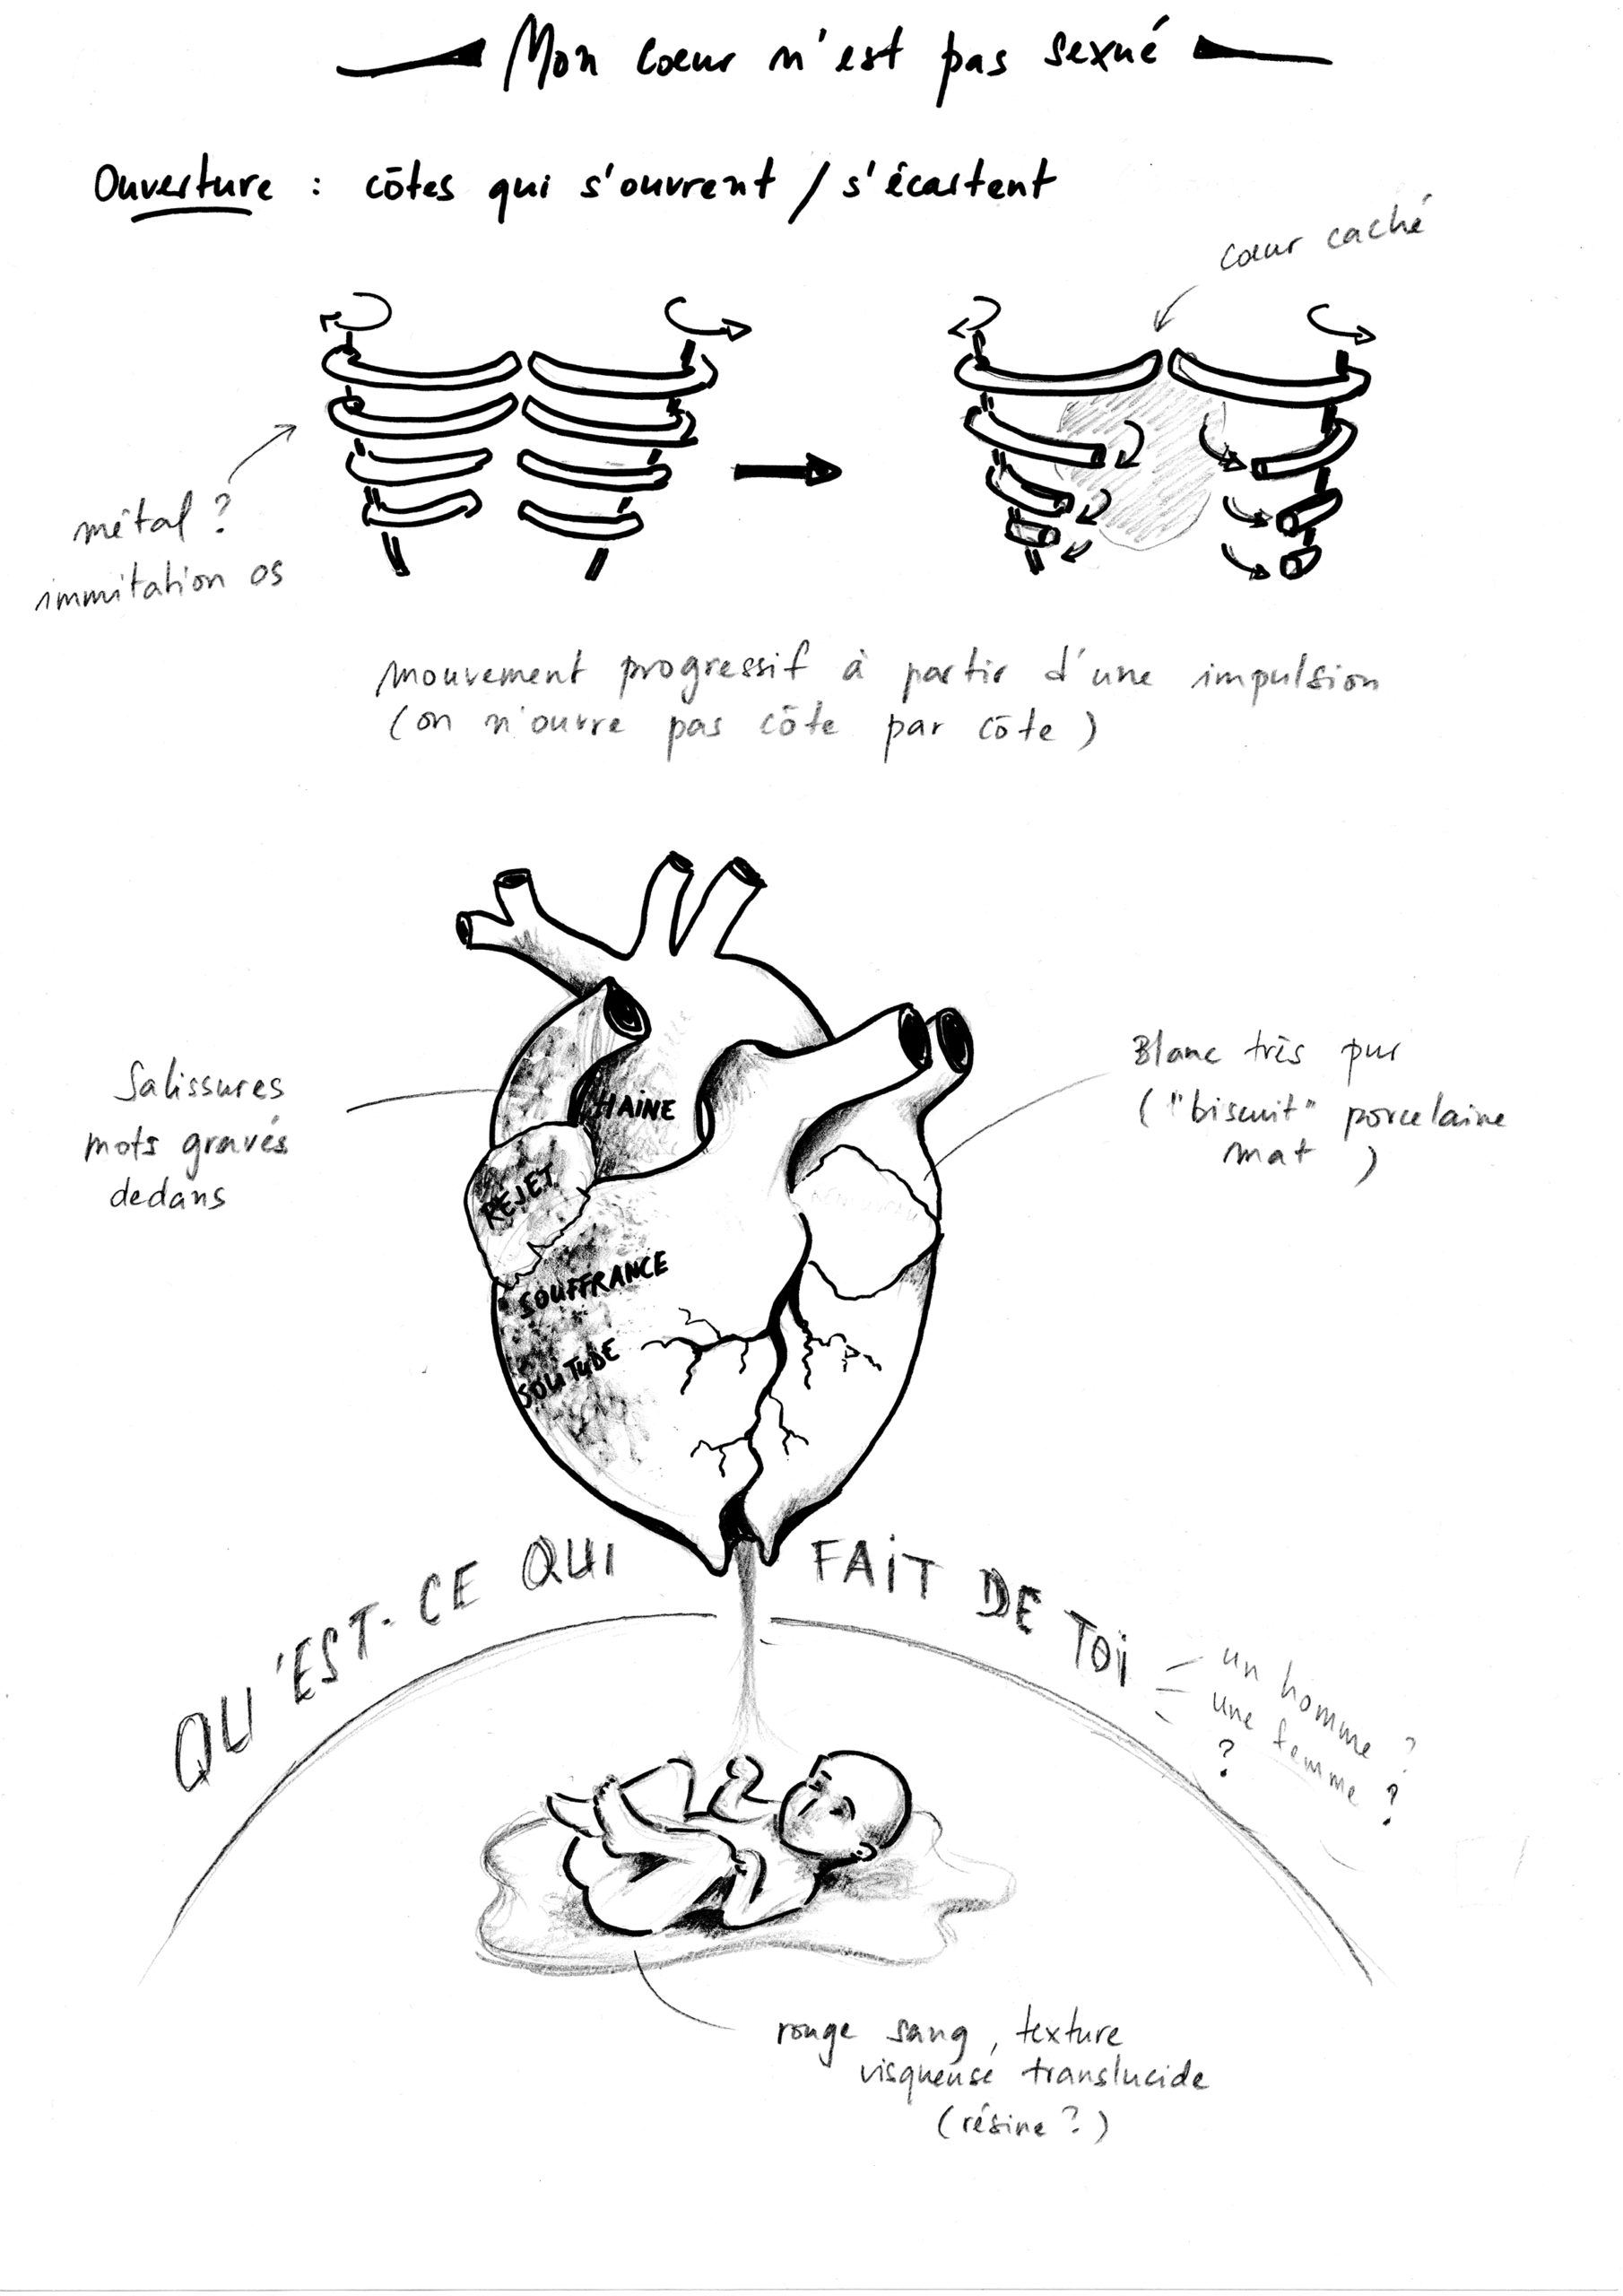 Mon coeur n'est pas sexué
Ouverture : côtes qui s'ouvrent / s'écartent
coeur caché
métal ?
immitation os
mouvement progressif à partir d'une impulsion
(on n'ouvre pas côte par côte)
Salissures
mots gravés
dedans
Blanc très pur
("biscuit" porcelaine
mat )
HAINE
REJET
SOUFFRANCE
SOLITUDE
QU'EST-CE QUI FAIT DE TOI
un homme ?
une femme ?
?
rouge sang, texture
visqueuse translucide
(résine ?)